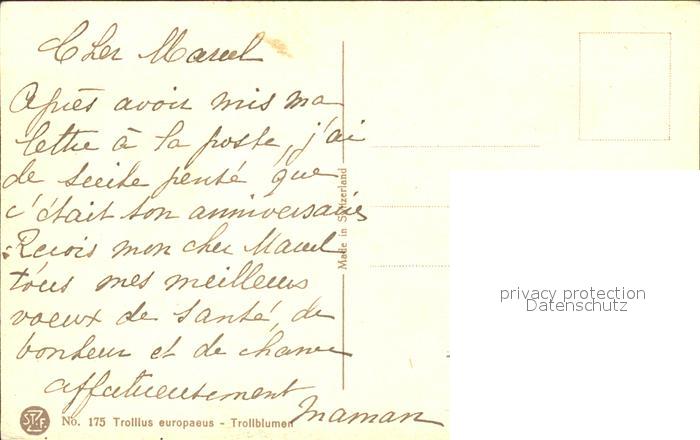 Cher Marcel
Après avoir mis ma
lettre à la poste, j'ai
de suite pensé que
c'était ton anniversaire
Reçois mon cher Marcel
tous mes meilleurs
voeux de santé, de
bonheur et de chance
affectueusement
Maman
Made in Switzerland
privacy protection
Datenschutz
No. 175 Trollius europaeus - Trollblumen